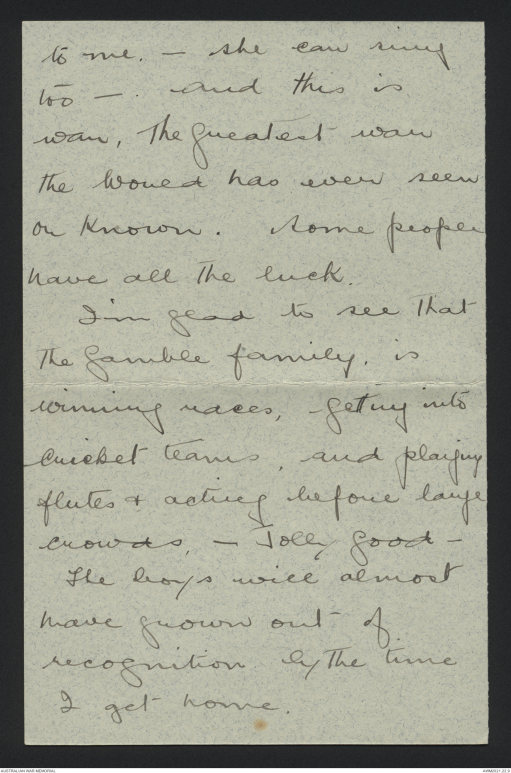 to me. - she can sing
too -. And this is
war, The Greatest war
the World has ever seen
or known. Some people
have all the luck.
I'm glad to see that
the Gamble family, is
winning races, geting into
cricket teams, and playing
flutes & acting before large
crowds, - Jolly good -
The boys will almost
have grown out of
recognition by the time
I get home.
AUSTRALIAN WAR MEMORIAL